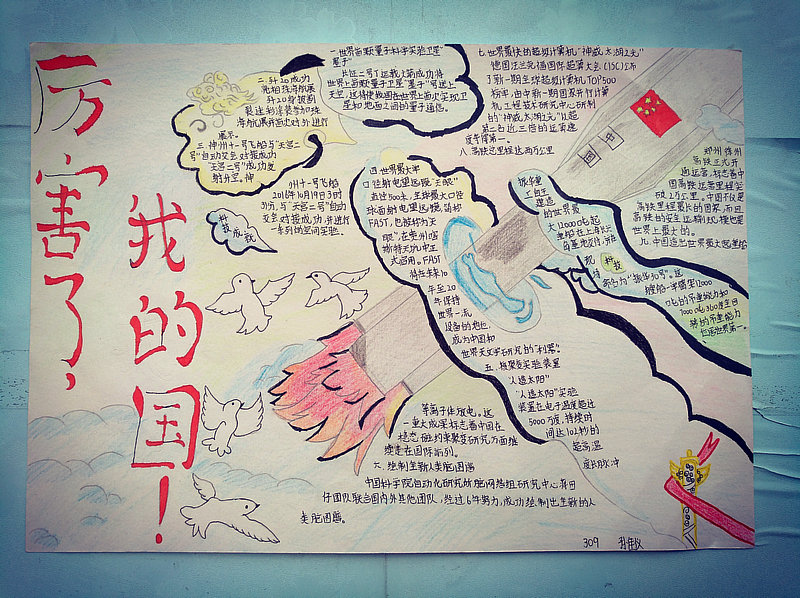 厉害了，
我的国！
一.世界首颗量子科学实验卫星
"墨子"
长征二号丁运载火箭成功将
世界上首颗量子卫星"墨子"号送上
天空，这将使我国在世界上首次实现卫
星和地面之间的量子通信。
二.歼20成功
亮相珠海航展
歼20隐形战
裂迷彩涂装参加珠
海航展并首次对外进行
展示。
三.神州十一号飞船与"天宫二
号"自动交会对接成功
"天宫二号"成功发
射升空。神
州十一号飞船
2016年10月19日3时
31分，与"天宫二号"自动
交会对接成功，并进行
一系列的空间实验。
科技成就
四.世界最大单
口径射电望远镜"天眼"
直径500米，全球最大口径
球面射电望远镜，简称
FAST，也被称为"天
眼"，在贵州喀
斯特天坑中正
式启用。FAST
将在未来10
年至20
年保持
世界一流
设备的地位，
成为中国和
世界天文学研究的"利器"。
五.核聚变实验装置
"人造太阳"
"人造太阳"实验
装置在电子温度超过
5000万度、持续时
间达102秒的
超高温
度长脉冲
等离子体放电。这
一重大成果标志着中国在
稳态磁约束聚变研究方面继
续走在国际前列。
六.绘制全新人类脑图谱
中国科学院自动化研究所脑网络组研究中心蒋田
仔团队联合国内外其他团队，经过6年努力，成功绘制出全新的人
类脑图谱。
七.世界最快的超级计算机"神威·太湖之光"
德国法兰克福国际超算大会（ISC）公布
了新一期全球超级计算机TOP500
榜单，由中国国家并行计算
机工程技术研究中心研制
的"神威·太湖之光"以超
第二名近三倍的运算速
度夺得第一。
八.高铁总里程达两万公里
中
国
郑州徐州
高铁正式开
通运营，标志着中
国高铁运营里程突
破2万公里。中国不仅是
高铁里程最长的国家，而且
高铁的安全运输规模也是
世界上最大的。
九.中国造出世界最大起重船
振华重
工自主
建造
的世界最
大12000吨起
重船在上海长兴
岛基地交付，并
科技
命名为"振华30号"。这
艘船一単臂架12000
吨的吊重能力和
7000吨360度全回
转的吊重能力
位居世界第一。
309